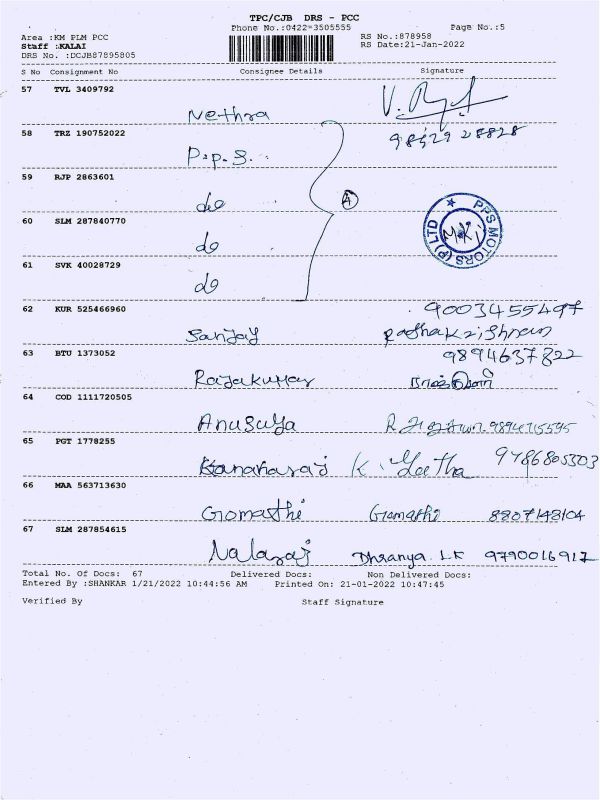 TPC/CJB DRS - PCC
Phone No.:0422-3505555 Page No.:5
Area :KM PLM PCC RS No.:878958
Staff :KALAI RS Date:21-Jan-2022
DRS No. :DCJB87895805
S No Consignment No Consignee Details Signature
57 TVL 3409792
Nethra
58 TRZ 190752022
P.p.S.
59 RJP 2863601
do
A
60 SLM 287840770
do
PPS MOTORS (P) LTD
61 SVK 40028729
do
62 KUR 525466960 9003455497
Sanjay Radhakrishnan
63 BTU 1373052 9894637822
Rajakumar
64 COD 1111720505
Anusuya
65 PGT 1778255
Kanakaraj K. Geetha 9786805303
66 MAA 563713630
Gomathi Gomathi 8807148104
67 SLM 287854615
Nalaraj Dhranya. LK 9790016917
Total No. Of Docs: 67 Delivered Docs: Non Delivered Docs:
Entered By :SHANKAR 1/21/2022 10:44:56 AM Printed On: 21-01-2022 10:47:45
Verified By Staff Signature